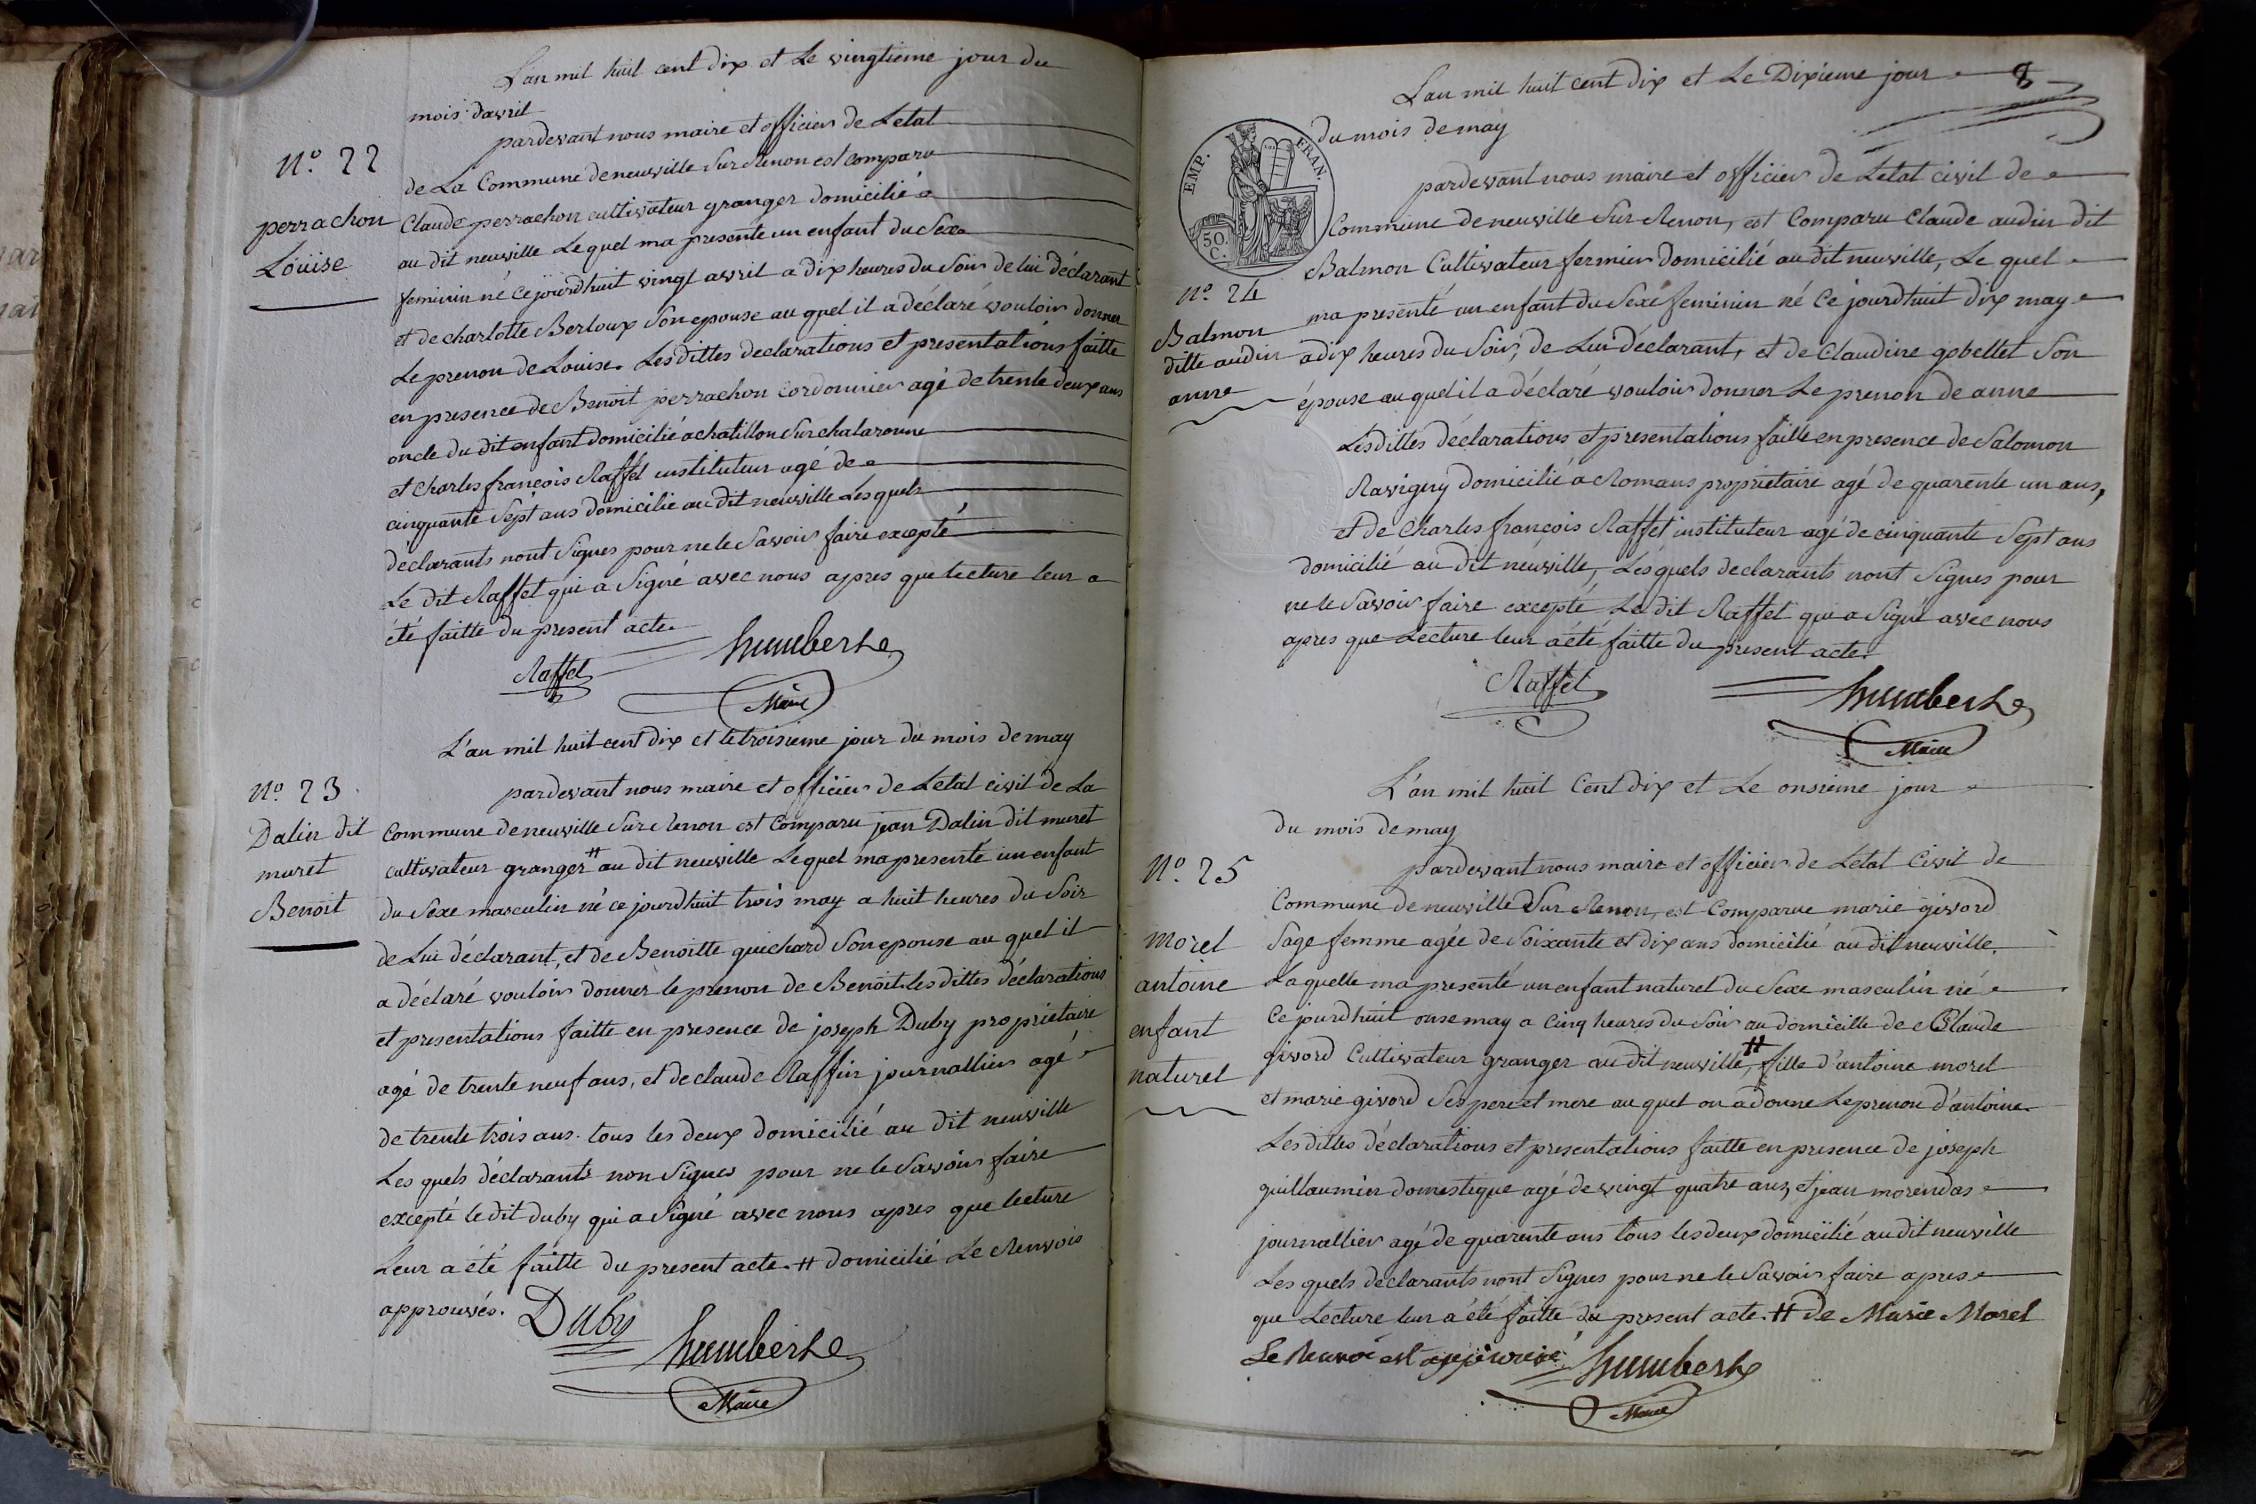 L'an mil huit cent dix et Le vingtieme jour du
mois d'avril
pardevant nous maire et officier de Letat
N.o 22
de La Commune de neuville Sur Renon est comparu
perrachon
Louise
Claude perrachon cultivateur granger domicilié
au dit neuville Lequel ma presente un enfant du Sexe
feminin né Cejourdhuit vingt avril a dix heures du Soir de lui déclarant
et de charlotte Berloux Son epouse au quel il a déclaré vouloir donner
Le prenon de Louise. Les dittes declarations et presentations faitte
en presence de Benoit perrachon cordonnier agé de trente deux ans
oncle du dit enfant domicilié a chatillon Sur chalaronne
et Charles françois Raffet instituteur agé de
cinquante Sept ans domicilie au dit neuville Lesquels
déclarants nont Signes pour ne le Savoir faire excepté
Le dit Raffet qui a Signé avec nous apres que lecture leur a
été faitte du present acte.
Raffet
humbert
Maire
L'an mil huit cent dix et le troisieme jour du mois de may
N.o 23
Dalin dit
muret
Benoit
pardevant nous maire et officier de Letat civil de La
Commune de neuville Sur Renon est Comparu jean Dalin dit muret
cultivateur granger # au dit neuville Lequel ma presenté un enfant
du Sexe masculin né ce jourdhuit trois may a huit heures du Soir
de Lui déclarant, et de Benoitte guichard Son epouse au quel il
a déclaré vouloir donner le prenon de Benoit les dittes déclarations
et presentations faitte en presence de joseph Duby proprietaire
agé de trente neuf ans, et de claude Raffin journallier agé
de trente trois ans. tous les deux domicilié au dit neuville
Les quels déclarants non Signes pour ne le Savoir faire
excepté le dit duby qui a Signé avec nous apres que lecture
Leur a été faitte du present acte. # domicilié Le Renvois
approuvés.
Duby
humbert
Maire
L'an mil huit cent dix et Le Dixieme jour
8
du mois de may
EMP. FRAN.
50 C.
pardevant nous maire et officier de Letat civil de
Commune de neuville Sur Renon, est Comparu Claude audin dit
Balmon Cultivateur fermier domicilié au dit neuville, Le quel
N.o 24
Balmon
ditte audin
anne
ma presenté un enfant du Sexe feminin né Ce jourdhuit dix may
a dix heures du Soir, de Lui déclarant, et de Claudine gobellet Son
épouse au quel il a déclaré vouloir donner Le prenon de anne
Lesdittes déclarations et presentations faitte en presence de Salomon
Ravigny domicilié a Romans proprietaire agé de quarente un ans,
et de Charles françois Raffet instituteur agé de cinquante Sept ans
domicilié au dit neuville, Lesquels declarants nont Signes pour
ne le Savoir faire excepté Le dit Raffet qui a Signé avec nous
apres que Lecture leur a été faitte du present acte.
Raffet
humbert
Maire
L'an mil huit Cent dix et Le onsieme jour
du mois de may
N.o 25
morel
antoine
enfant
naturel
pardevant nous maire et officier de Letat Civil de
Commune de neuville Sur Renon, est Comparue marie givord
Sage femme agée de Soixante et dix ans domicilié au dit neuville.
Laquelle ma presenté un enfant naturel du Sexe masculin né
Ce jourdhuit onse may a Cinq heures du Soir au domicille de Claude
givord Cultivateur granger au dit neuville, # fille d'antoine morel
et marie givord Ses pere et mere au quel on a donne Le prenon d'antoine.
Les dittes déclarations et presentations faitte en presence de joseph
guillaumin domestique agé de vingt quatre ans, et jean morendas
journallier agé de quarente ans tous les deux domicilié au dit neuville
Les quels declarants nont Signes pour ne le Savoir faire apres
que Lecture leur a été faitte du present acte. # de Marie Morel
Le Renvoi est approuvé.
humbert
Maire